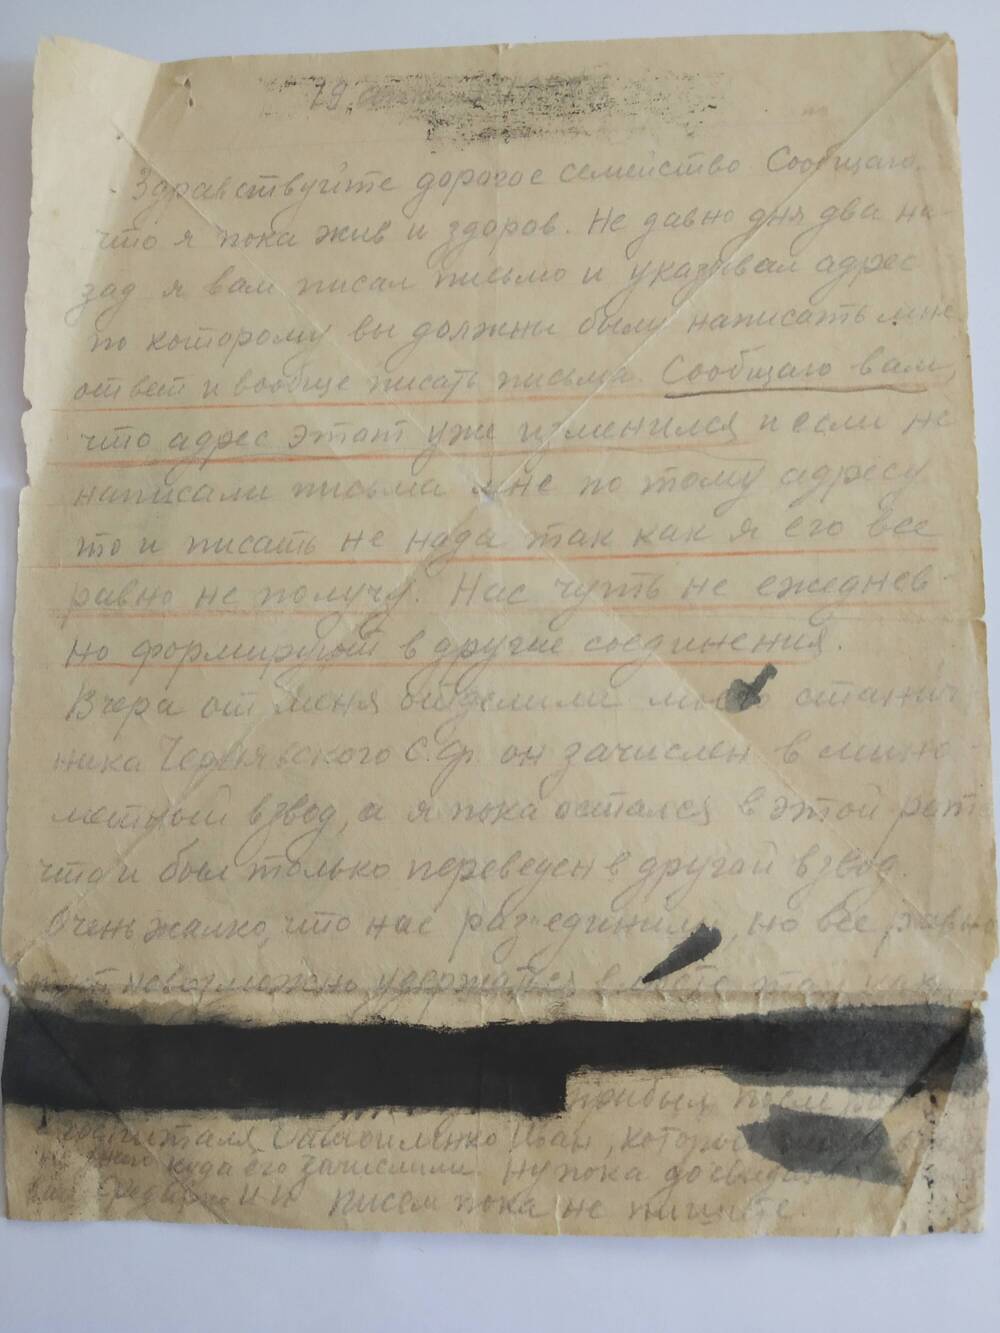 19
Здравствуйте дорогое семейство. Сообщаю
что я пока жив и здоров. Не давно дня два на-
зад я вам писал письмо и указывал адрес
по которому вы должны были написать мне
ответ и вообще писать письма. Сообщаю вам,
что адрес этот уже изменился и если не
написали письма мне по тому адресу
то и писать не нада так как я его все
равно не получу. Нас чуть не ежеднев-
но формируют в другие соединения.
Вчера от меня отделили моего станич-
ника Чернявского С.Ф. он зачислен в мино-
метный взвод, а я пока остался в этой рот
что и был только переведен в другой взвод.
Очень жалко, что нас разъединили, но все равно
невозможно удержаться вместе
прибыл после
госпиталя Самойленко Иван, который
куда его зачислили. Ну пока до свидания
Писем пока не пишите.